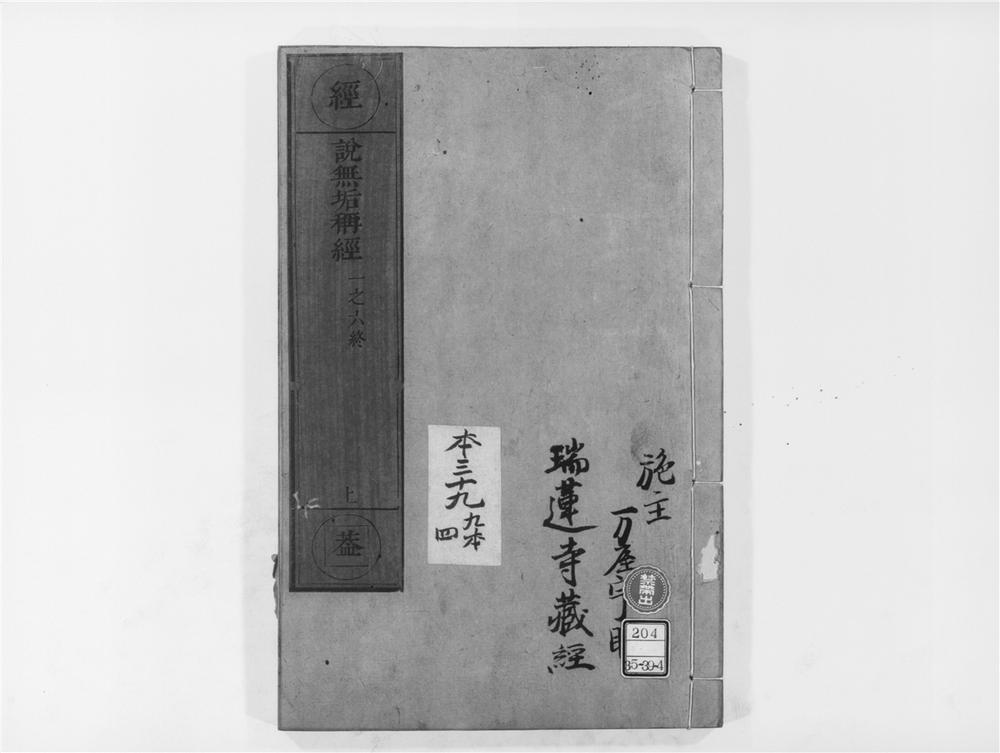 經
說無垢稱經
一之六終
上
施主
瑞蓮寺藏經
本三十九
九本
四
禁帶出
204
35-39-4